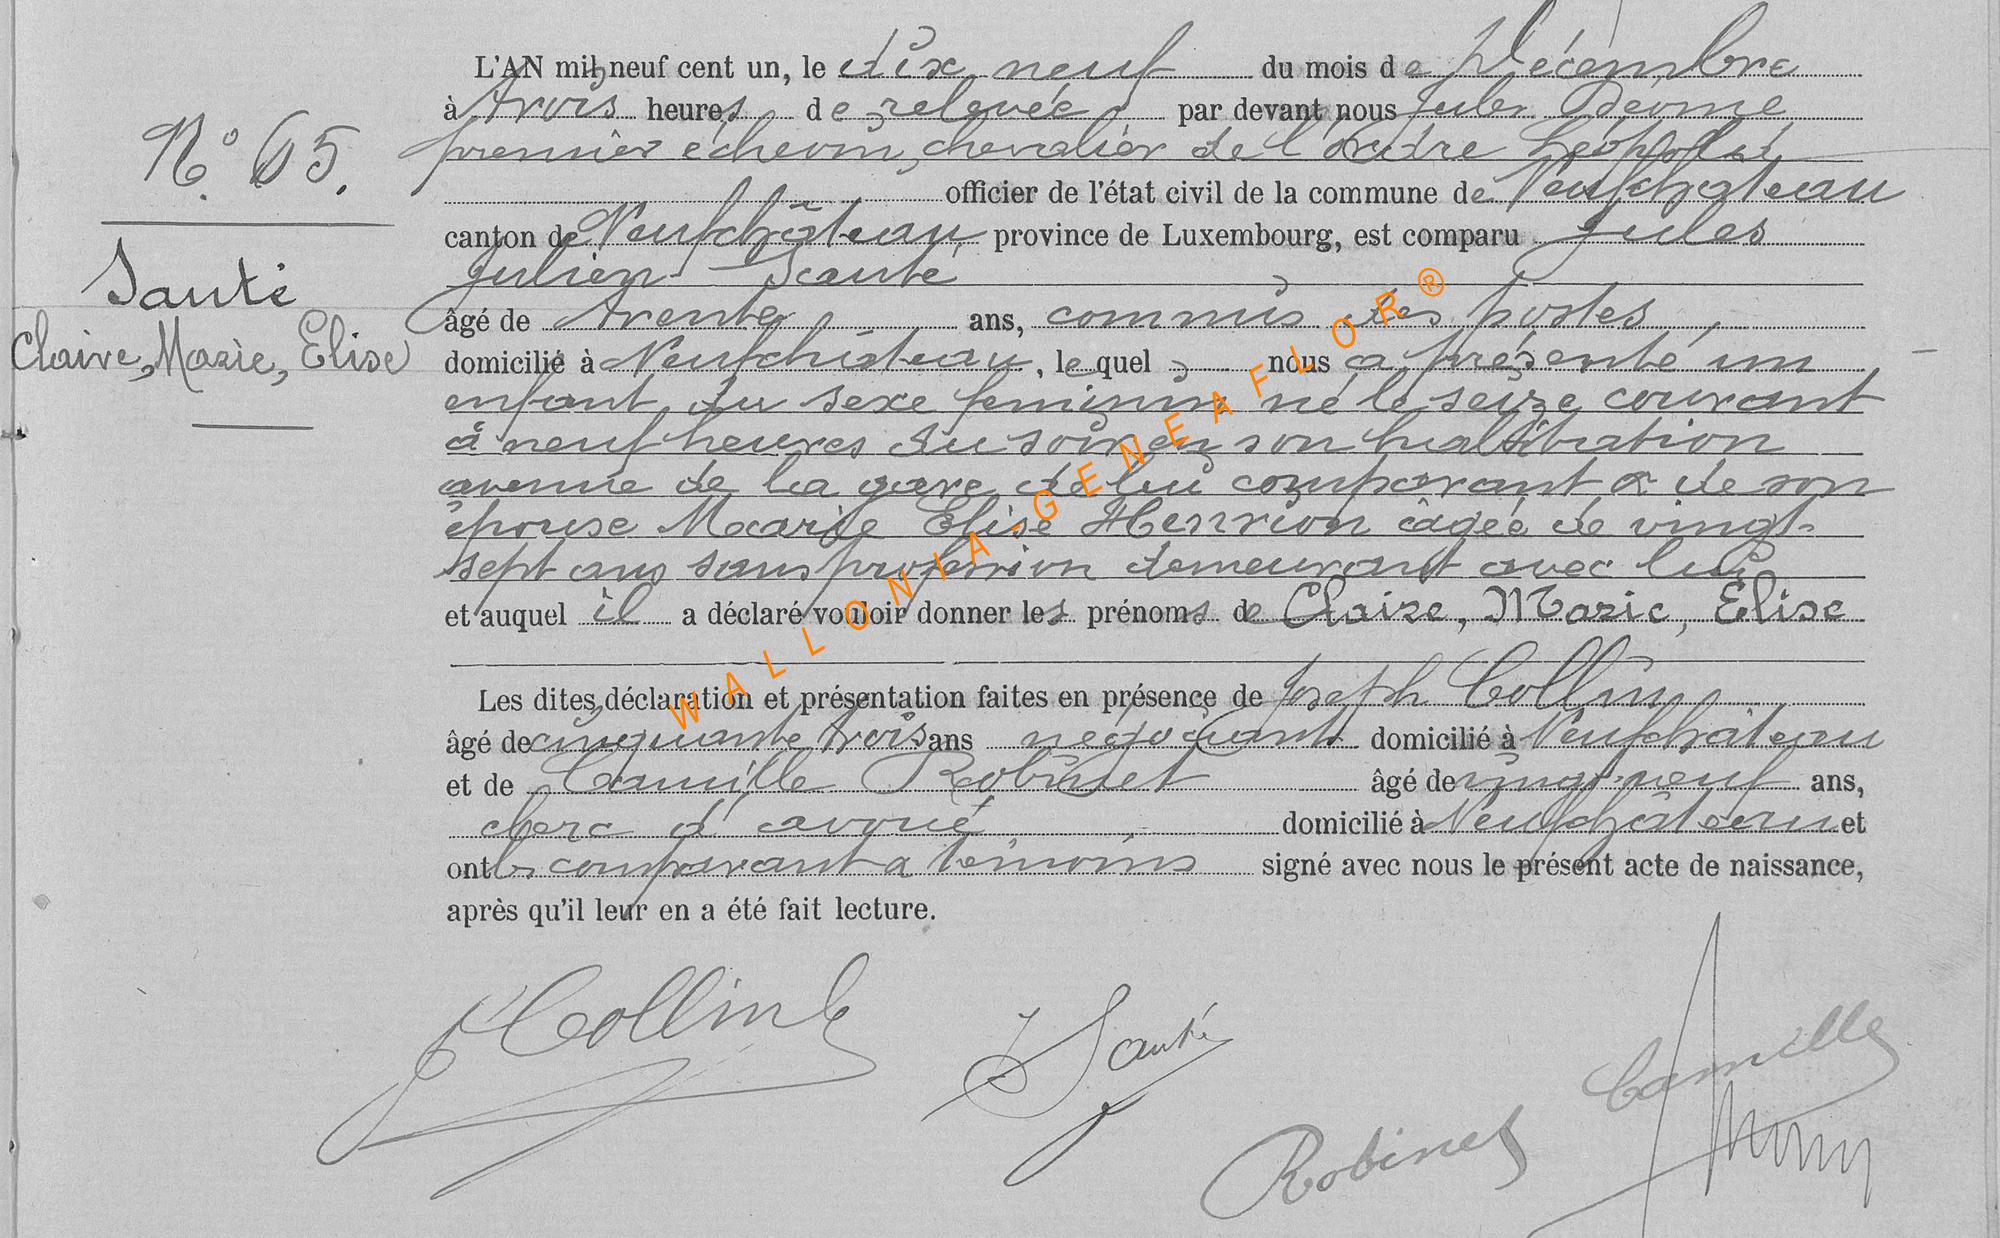 N° 65.
Santé
Claire, Marie, Elise
L'AN mil neuf cent un, le dix neuf du mois de Décembre
à trois heures de relevée par devant nous Jules
premier échevin, chevalier de l'ordre Léopold
officier de l'état civil de la commune de Neufchâteau
canton de Neufchâteau, province de Luxembourg, est comparu Jules
Julien Santé
âgé de trente ans, commis des postes,
domicilié à Neufchâteau, lequel nous a présenté un
enfant du sexe feminin né le seize courant
à neuf heures du soir en son habitation
avenue de la gare de lui comparant & de son
épouse Marie Elise Henrion âgée de vingt-
sept ans sans profession demeurant avec lui
et auquel il a déclaré vouloir donner les prénoms de Claire, Marie, Elise
Les dites déclaration et présentation faites en présence de Joseph Collin
âgé de cinquante trois ans négociant domicilié à Neufchâteau
et de Camille Robinet âgé de vingt-neuf ans,
clerc d'avoué, domicilié à Neufchâteau et
ont les comparant & témoins signé avec nous le présent acte de naissance,
après qu'il leur en a été fait lecture.
Collin
J Santé
Camille
Robinet
WALLONIA-GENEAFLOR®